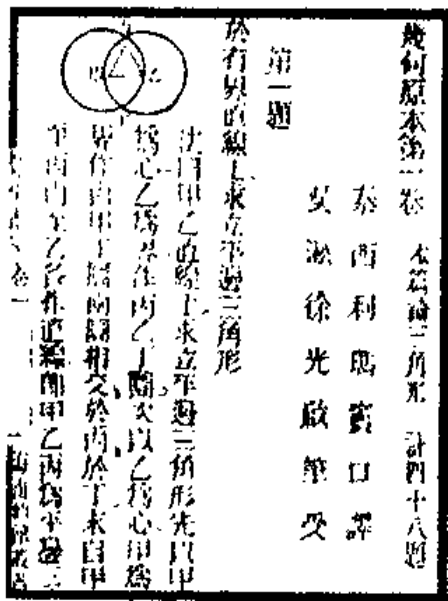 幾何原本第一卷 本篇論三角形 計四十八題
泰西利瑪竇口譯
吳淞徐光啟筆受
第一題
於有界直線上求立平邊三角形
法曰甲乙直線上求立平邊三角形先以甲
爲心乙爲界作丙乙丁圜次以乙爲心甲爲
界作丙甲丁圜兩圜相交於丙於丁末自甲
至丙丙至乙各作直線卽甲乙丙爲平邊三
甲
乙